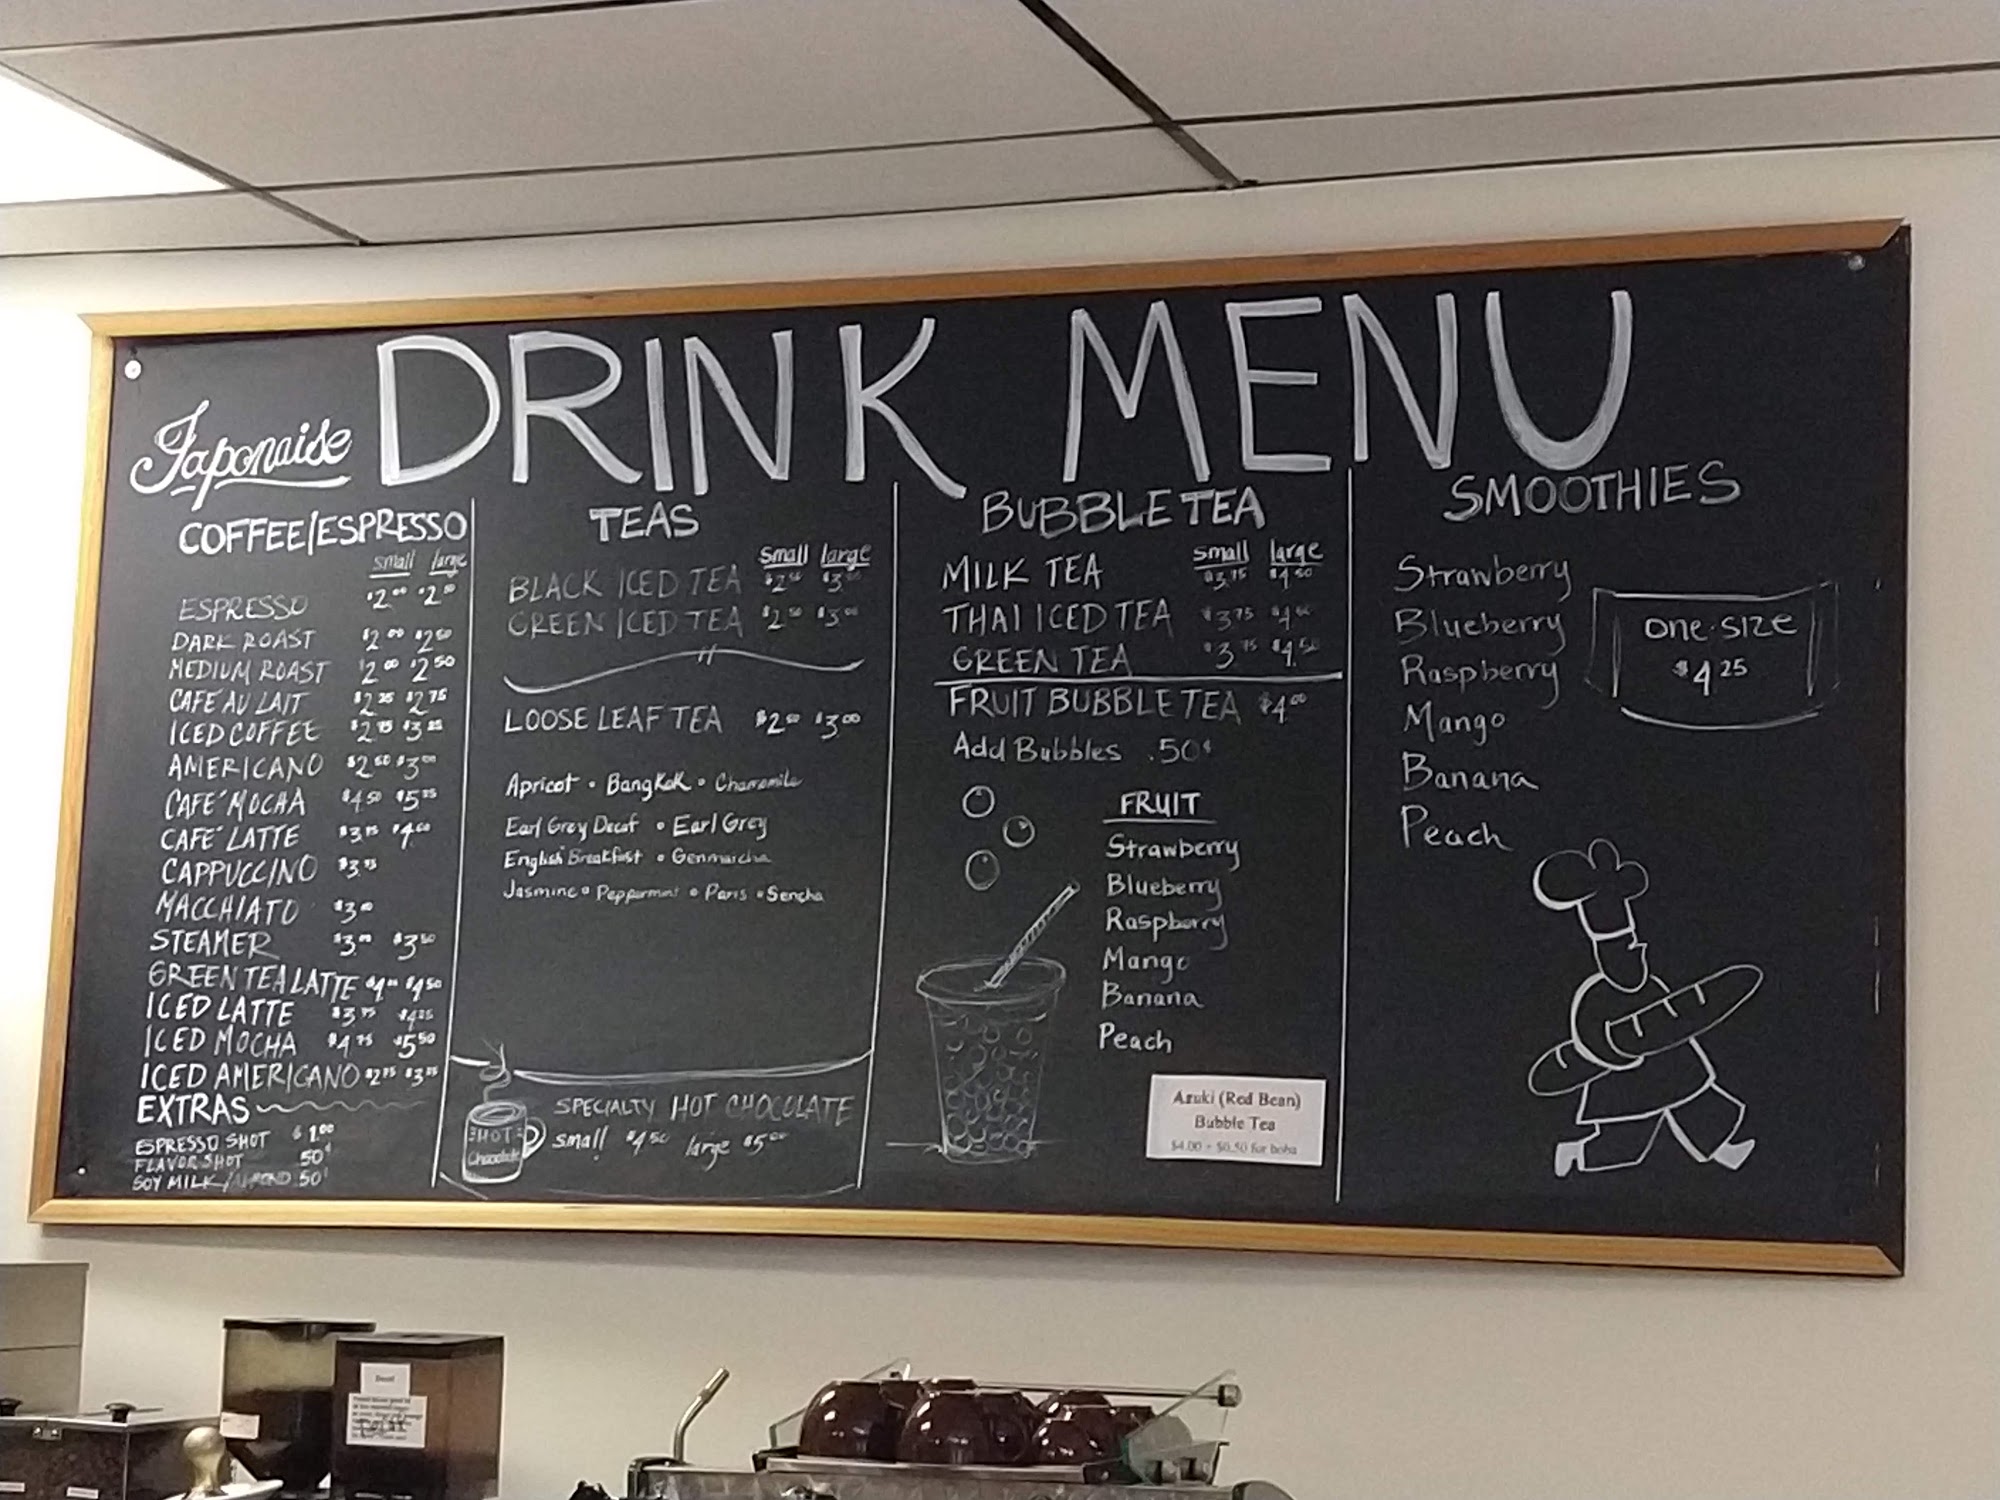 DRINK MENU
Japonaise
COFFEE/ESPRESSO
small large
ESPRESSO $2.00 $2.50
DARK ROAST $2.00 $2.50
MEDIUM ROAST $2.00 $2.50
CAFÉ AU LAIT $2.25 $2.75
ICED COFFEE $2.75 $3.25
AMERICANO $2.50 $3.00
CAFÉ MOCHA $4.50 $5.25
CAFÉ LATTE $3.75 $4.00
CAPPUCCINO $3.75
MACCHIATO $3.00
STEAMER $3.00 $3.50
GREEN TEA LATTE $4.00 $4.50
ICED LATTE $3.75 $4.25
ICED MOCHA $4.75 $5.50
ICED AMERICANO $2.75 $3.25
EXTRAS
ESPRESSO SHOT $1.00
FLAVOR SHOT 50¢
SOY MILK/ALMOND .50¢
TEAS
small large
BLACK ICED TEA $2.50 $3.00
GREEN ICED TEA $2.50 $3.00
LOOSE LEAF TEA $2.50 $3.00
Apricot • Bangkok • Chamomile
Earl Grey Decaf • Earl Grey
English Breakfast • Genmaicha
Jasmine • Peppermint • Paris • Sencha
HOT
Chocolate
SPECIALTY HOT CHOCOLATE
small $4.50 large $5.00
BUBBLE TEA
small large
MILK TEA $3.75 $4.50
THAI ICED TEA $3.75 $4.50
GREEN TEA $3.75 $4.50
FRUIT BUBBLE TEA $4.00
Add Bubbles .50¢
FRUIT
Strawberry
Blueberry
Raspberry
Mango
Banana
Peach
Azuki (Red Bean)
Bubble Tea
$4.00 + $0.50 for boba
SMOOTHIES
Strawberry
Blueberry
Raspberry
Mango
Banana
Peach
one-size
$4.25
Decaf